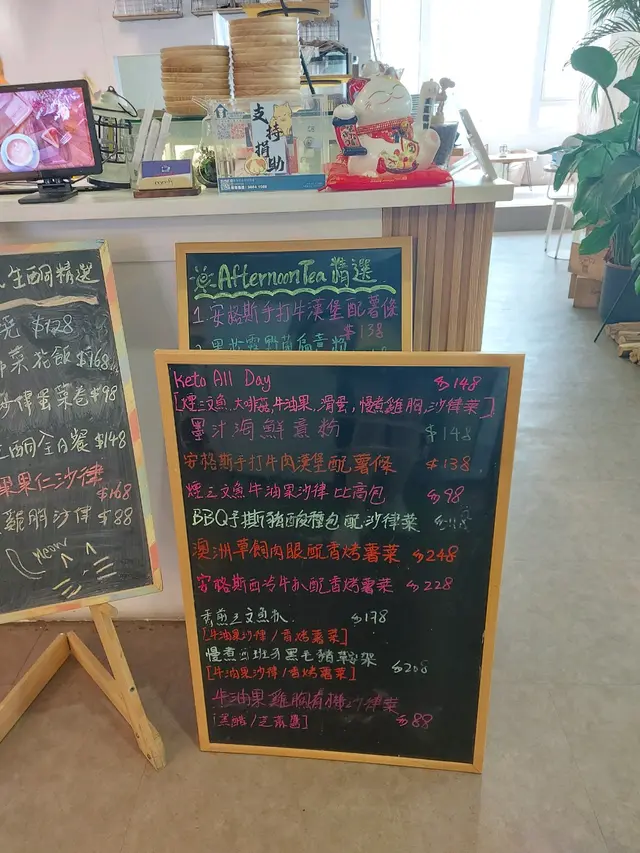 支持捐助
生酮精選
$128
$168
$98
生酮全日餐 $148
果仁沙律
$168
雞胸沙律 $88
Meow
Afternoon Tea 精選
1. 安格斯手打牛漢堡配薯條
$138
2.
Keto All Day $148
[煙三文魚, 大啡菇, 牛油果, 滑蛋, 慢煮雞胸, 沙律菜]
墨汁海鮮意粉 $148
安格斯手打牛肉漢堡配薯條 $138
煙三文魚牛油果沙律比高包 $98
BBQ手撕豬酸種包配沙律菜
澳洲草飼肉眼配香烤薯菜 $248
安格斯西冷牛扒配香烤薯菜 $228
香煎三文魚扒 $178
[牛油果沙律/香烤薯菜]
慢煮西班牙黑毛豬鞍架 $208
[牛油果沙律/香烤薯菜]
牛油果雞胸沙律菜
[黑醋/芝麻醬] $88